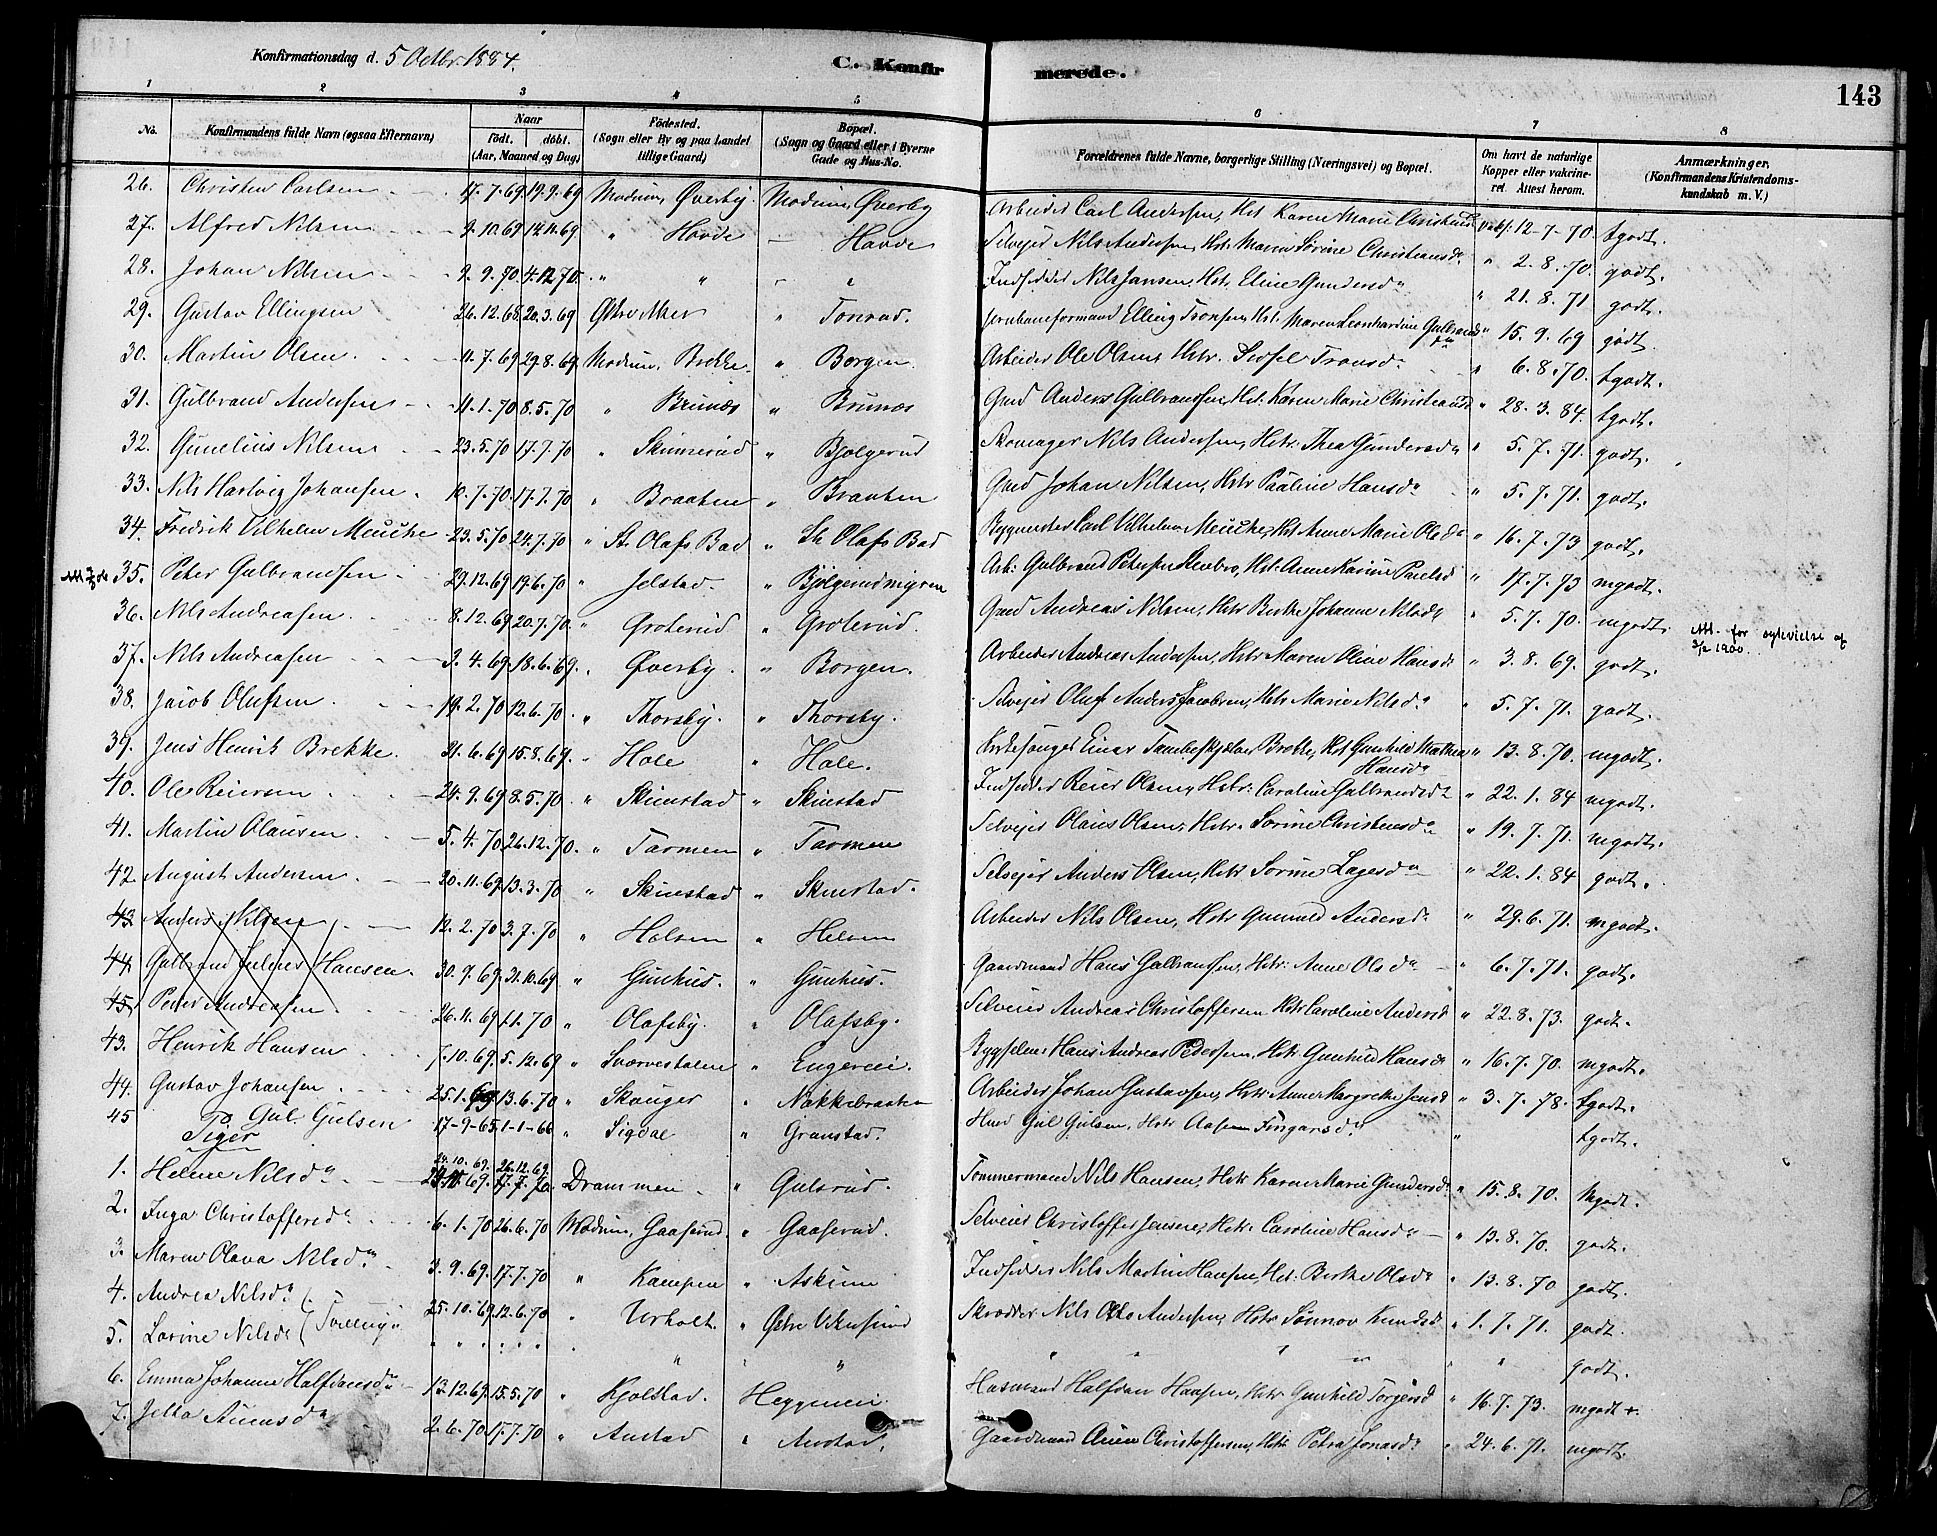 Konfirmationsdag d. 5 Octbr. 1884.
C. Konfirmerede.
143
1 2 3 4 5 6 7 8
No. Konfirmandens fulde Navn (ogsaa Efternavn) Naar født. døbt. (Aar, Maaned og Dag) Fødested. (Sogn eller By og paa Landet tillige Gaard) Bopæl. (Sogn og Gaard eller i Byerne Gade og Hus-No. Forældrenes fulde Navne, borgerlige Stilling (Næringsvei) og Bopæl. Om havt de naturlige Kopper eller vakcineret. Attest herom. Anmærkninger, (Konfirmandens Kristendomskundskab m. V.)
26. Christen Carlsen 17.7.69 19.9.69 Modum, Øverby Modum, Øverby Arbeider Carl Andersen, Hst Karen Marie Christensd 12-7-70. tgodt.
27. Alfred Nilsen 9.10.69 14.11.69 " Hovde — Hovde Selveier Nils Andersen, Hst. Maria Sørine Christiansd " 2.8.70. godt.
28. Johan Nilsen 2.9.70 4.12.70. " " — " Indsidder Nils Jansen, Hst. Eline Gundersd " 21.8.71 godt.
29. Gustav Ellingsen 26.12.68 20.3.69 Østre Aker " Tonrud. Jernbaneformand Elling Tronsen, Hst. Maren Leonhardine Gulbrandsd " 15.9.69 godt.
30. Martin Olsen 11.7.69 29.8.69 Modum, Brekke " Borgen. Arbeider Ole Olsen, Hstr. Sidsel Tronsd " 6.8.70. tgodt.
31. Gulbrand Andersen 11.1.70 8.5.70 " Brunæs " Brunæs Gmd Anders Gulbrandsen, Hst. Karen Marie Christiansd " 28.3.84. tgodt.
32. Gunelius Nilsen 23.5.70 17.7.70 " Skinnerud " Bjølgerud Skomager Nils Andersen, Hstr. Thea Gundersd " 5.7.71. godt.
33. Nils Hartvig Johansen. 10.7.70 17.7.70 " Braaten " Braaten Gmd Johan Nilsen, Hstr Pauline Hansd " 5.7.71. godt.
34. Fredrik Vilhelm Meucke 23.5.70 24.7.70 " St. Olafs Bad " St. Olafs Bad Bygmester Carl Vilhelm Meucke, Hst Anne Marie Olsd " 16.7.73 godt.
35. Peter Gulbrandsen 29.12.69 19.6.70 " Jelstad. " Bjølgerudmyren Arb. Gulbrand Petersen, Hst. Anne Karine Paulsd " 17.7.73 mgodt.
36. Nils Andreasen 8.12.69 20.7.70. " Groterud " Groterud. Gmd Andreas Nilsen, Hstr Berthe Johanne Nilsd " 5.7.70. mgodt.
37. Nils Andreasen 3.4.69 18.6.69. " Øverby. " Borgen. Arbeider Andreas Andersen, Hstr. Maren Oline Hansd " 3.8.69. godt. Att. for oplevelse af 3/2 1900.
38. Jacob Olufsen 14.2.70 12.6.70. " Thorsby. " Thorsby. Selveier Oluf Anders Jacobsen, Hstr Marie Nilsd. " 5.7.71. godt.
39. Jens Henrik Brekke. 21.6.69 15.8.69. " Hole " Hole. Kirkesanger Einar Tambeskjelver Brekke, Hst Gunhild Mathea Hansd " 13.8.70. mgodt.
40. Ole Reiersen 24.9.69 8.5.70 " Skinstad " Skinstad Indsidder Reier Olsen, Hstr. Caroline Gulbrandsd " 22.1.84 mgodt.
41. Martin Olausen. 5.4.70 26.12.70. " Tarmen " Tarmen Selveier Olaus Olsen, Hstr. Sørine Christensd " 19.7.71. mgodt.
42. August Andersen 30.11.69 13.3.70 " Skinstad " Skinstad. Selveier Anders Olsen, Hstr Sørine Lagesd " 22.1.84 godt.
43 Anders Nilsen 12.2.70 3.7.70 " Helsen " Helsen Arbeider Nils Olsen, Hstr Gunhild Andersd " 29.6.71. mgodt.
44. Gulbrand Julius Hansen. 30.9.69. 31.10.69 " Gunhus. " Gunhus. Gaardmand Hans Gulbrandsen, Hstr. Anne Olsd " 6.7.71. godt.
45 Peter Andreasen 26.11.69 1.1.70 " Olafsby. " Olafsby. Selveier Andreas Christoffersen Hstr Caroline Andersd " 22.8.73. godt.
43. Henrik Hansen 7.10.69. 5.12.69 " Sværvestolen " Engereie. Bygselm. Hans Andreas Pedersen, Hst. Gunhild Hansd " 16.7.70. mgodt.
44. Gustav Johansen 25.1.69 13.6.70 " Skauger " Nakkebraaten Arbeider Johan Gustavsen, Hstr Anne Margrethe Jensd " 3.7.78. tgodt.
45 To. Gul. Gulsen 17-9-65 1-1-66 " Sigdal " Granstad. Hmd Gul Gulsen, Hstr Aase Fingarsd. " tgodt.
Piger
24.10.69. 26.12.69.
1. Helene Nilsd 69. 17.7.70 Drammen " Gulsrud. Tømmermand Nils Hansen, Hstr Karen Marie Gundersd " 15.8.70. mgodt.
2. Inga Christoffersd. 6.1.70 26.6.70 Modum, Gaaserud. " Gaaserud. Selveier Christoffer Jensen, Hstr. Caroline Hansd " 13.8.70. godt.
3. Maren Olava Nilsd. 3.9.69. 17.7.70 " Kampen " Askim Indsidder Nils Martin Hansen, Hst. Berthe Olsd " 13.8.70 godt.
4. Andrea Nilsd. 25.10.69. 12.6.70 " Urholt. " Østre Vikersund Skrædder Nils Otto Andersen, Hstr Sønnov Knudsd " 1.7.71. godt.
5. Lorine Nilsd. (Tvilling) " " " " " " " godt.
6. Emma Johanne Halfdansd. 13.12.69 15.5.70 " Kjølstad. Heggeneie. Husmand Halfdan Hansen, Hstr Gunhild Torgersd " 16.7.73. mgodt.
7. Jetta Auensd 2.6.70 17.7.70 " Austad " Austad, Gaardmand Auen Christoffersen, Hstr. Petra Jonasd " 24.6.71. mgodt.